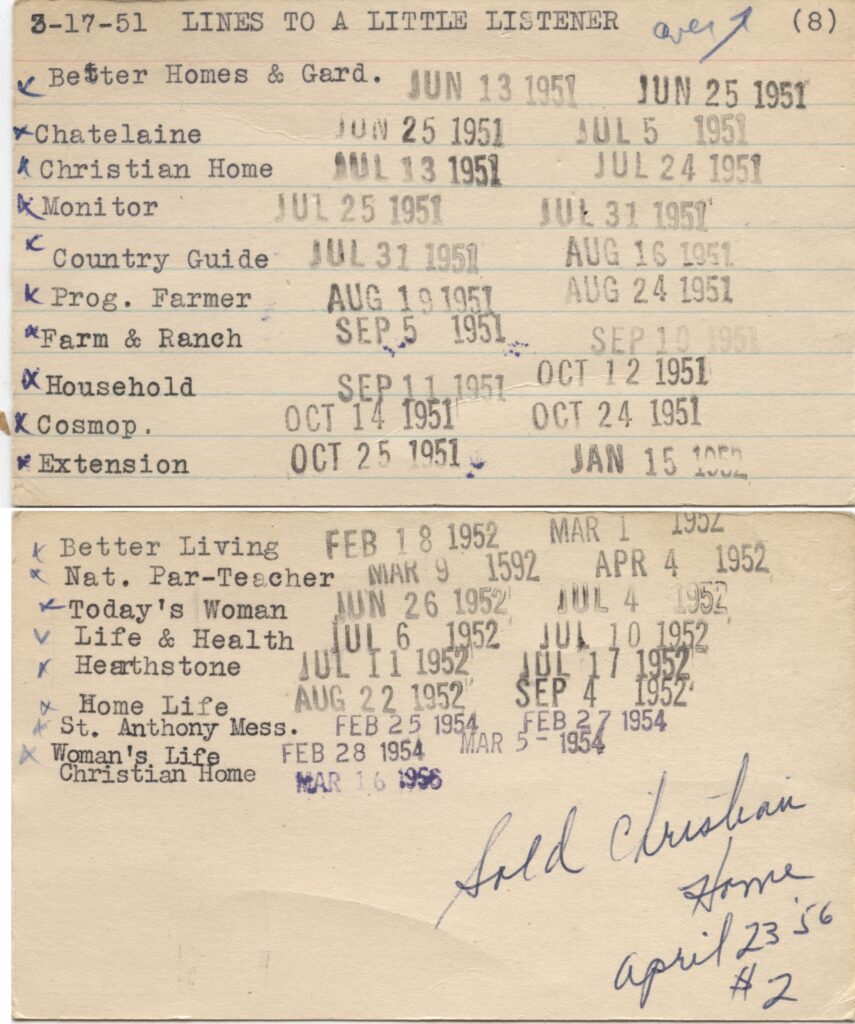 3-17-51 LINES TO A LITTLE LISTENER over (8)
Better Homes & Gard. JUN 13 1951 JUN 25 1951
Chatelaine JUN 25 1951 JUL 5 1951
Christian Home JUL 13 1951 JUL 24 1951
Monitor JUL 25 1951 JUL 31 1951
Country Guide JUL 31 1951 AUG 16 1951
Prog. Farmer AUG 19 1951 AUG 24 1951
Farm & Ranch SEP 5 1951 SEP 10 1951
Household SEP 11 1951 OCT 12 1951
Cosmop. OCT 14 1951 OCT 24 1951
Extension OCT 25 1951 JAN 15 1952
Better Living FEB 18 1952 MAR 1 1952
Nat. Par-Teacher MAR 9 1592 APR 4 1952
Today's Woman JUN 26 1952 JUL 4 1952
Life & Health JUL 6 1952 JUL 10 1952
Hearthstone JUL 11 1952 JUL 17 1952
Home Life AUG 22 1952 SEP 4 1952
St. Anthony Mess. FEB 25 1954 FEB 27 1954
Woman's Life FEB 28 1954 MAR 5- 1954
Christian Home MAR 16 1956
Sold Christian
Home
April 23 '56
#2